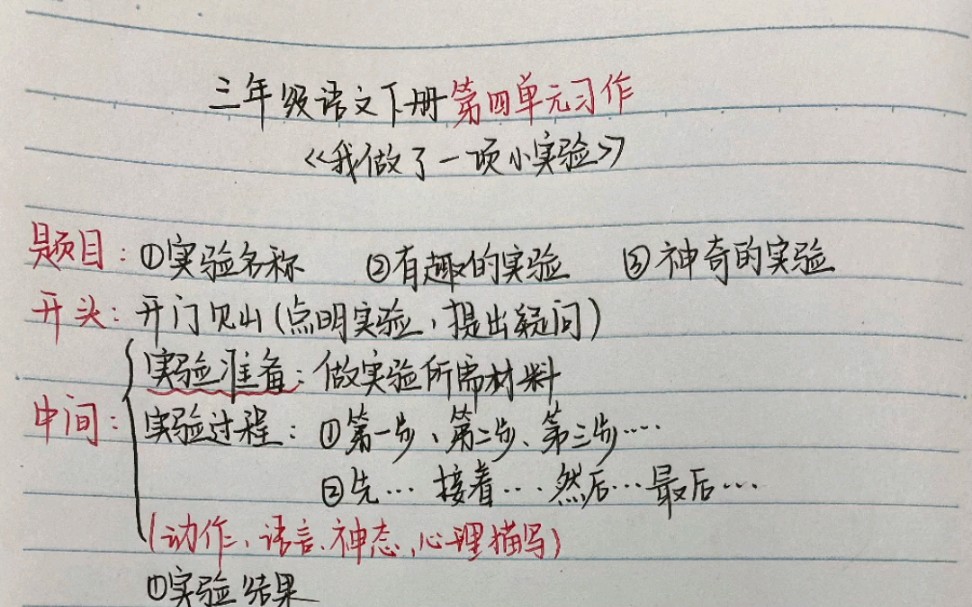 三年级语文下册第四单元习作
《我做了一项小实验》
题目：①实验名称 ②有趣的实验 ③神奇的实验
开头：开门见山(点明实验，提出疑问)
实验准备：做实验所需材料
中间：
实验过程：①第一步、第二步、第三步……
②先… 接着… 然后… 最后…
(动作、语言、神态、心理描写)
①实验结果